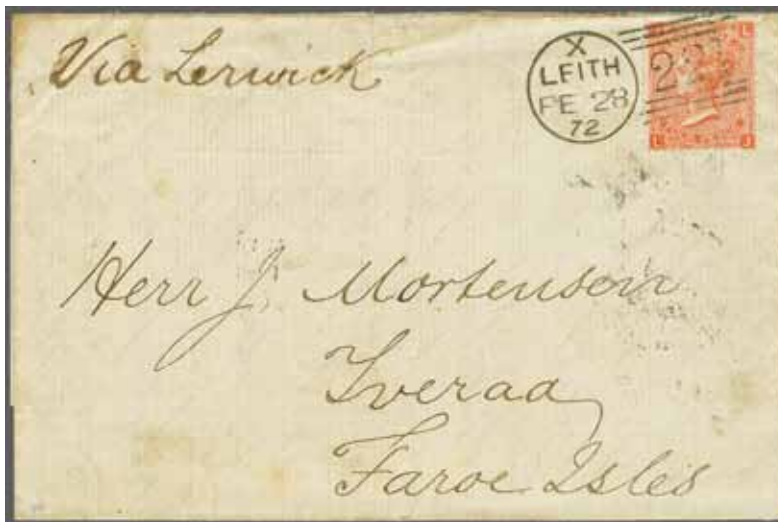 Via Lerwick
X
LEITH
FE 28
72
L
L J
Herr J. Mortensen
Tveraa
Faroe Isles